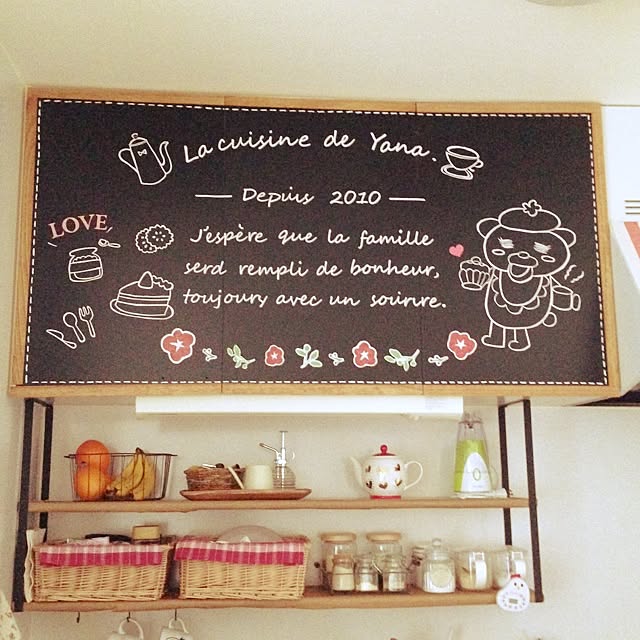 La cuisine de Yana.
Depuis 2010
LOVE
J'espère que la famille
serd rempli de bonheur,
toujoury avec un souinre.